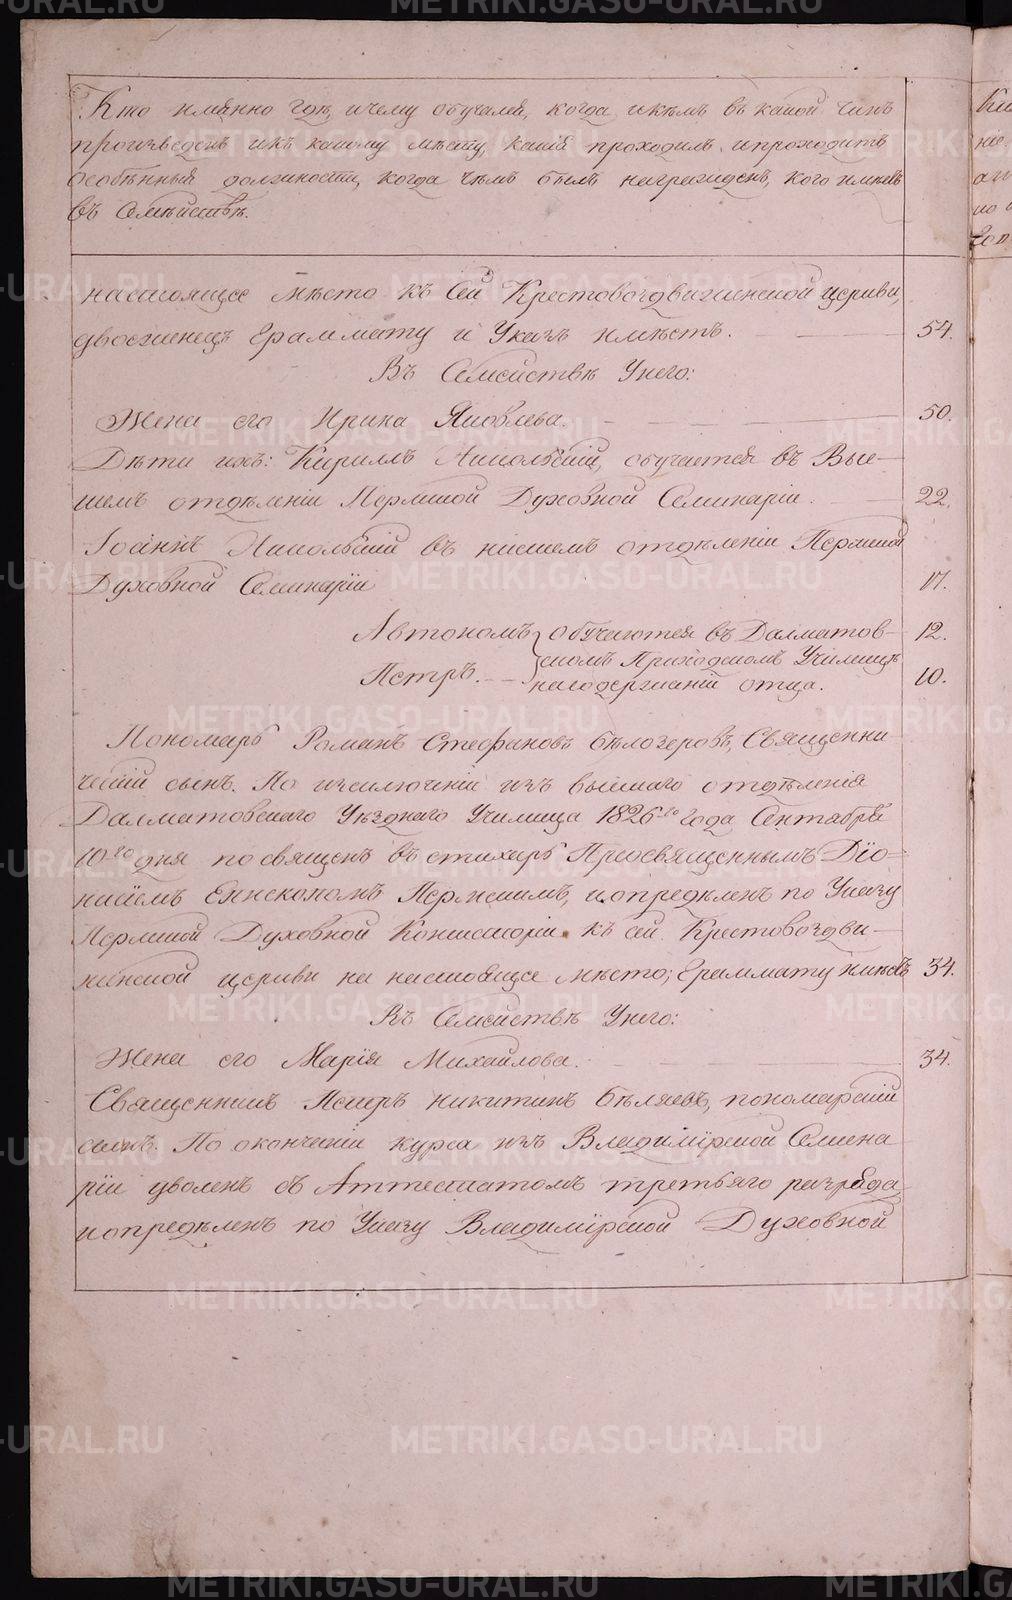 Кто имянно где, и чему обучался, когда и кемъ въ какой чинъ
произведенъ и къ какому мѣсту, какія проходилъ и проходитъ
особѣнныя должности, когда чѣмъ былъ награжденъ, кого имѣетъ
въ Семѣйствѣ.
настоящее мѣсто къ сей Крестовоздвиженской церкви,
двоеженецъ Грамматy и Указъ имѣетъ. 54.
Въ Семействѣ Унего:
Жена его Ирина Яковлева. 50.
Дѣти ихъ: Кириллъ Никольскій, обучается въ Выс-
шемъ отдѣленіи Пермской Духовной Семинаріи. 22.
Іоаннъ Никольскій въ нисшемъ отдѣленіи Пермской
Духовной Семинаріи 17.
Автономъ обучаются въ Далматов- 12.
скомъ Приходскомъ Училищѣ
Петръ. на содержаніи отца. 10.
Пономарь Романъ Стефановъ Бѣлозеровъ, Священни
ческій сынъ. По изключеніи изъ высшаго отдѣленія
Далматовскаго Уѣзднаго Училища 1826-го года Сентября
10-го дня посвященъ въ стихарь Преосвященнымъ Діо-
нисіемъ Епископомъ Пермскимъ, и опредѣленъ по Указу
Пермской Духовной Консисторіи къ сей Крестовоздви-
женской церкви на настоящее мѣсто; Грамматy имѣетъ 34.
Въ Семействѣ Унего:
Жена его Марія Михайлова. 34.
Священникъ Петръ Никитинъ Бѣляевъ, пономарскій
сынъ. По окончаніи курса изъ Владимірской Семина
ріи уволенъ съ Аттестатомъ третьяго разряда,
и опредѣленъ по Указу Владимірской Духовной
METRIKI.GASO-URAL.RU